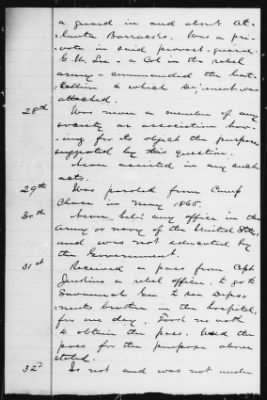 a guard in and about At-
lanta Barracks. Was a pri-
vate in said provost-guard.
G. W. Lee - a Col in the rebel
army - commanded the bat-
tallion to which Dept was
attached.
28th Was never a member of any
society or association hav-
ing for its object the purpose
suggested by this question.
Never assisted in any such
acts.
29th Was paroled from Camp
Chase in May 1865.
30th Never held any office in the
Army or navy of the United States
and was not educated by
the Government.
31st Received a pass from Capt
Jenkins a rebel officer to go to
Savannah Geo to see Depo-
nents brother in the hospital
for one day. Took no oath
to obtain the pass. Used the
pass for the purpose above
stated.
32d Is not and was not under